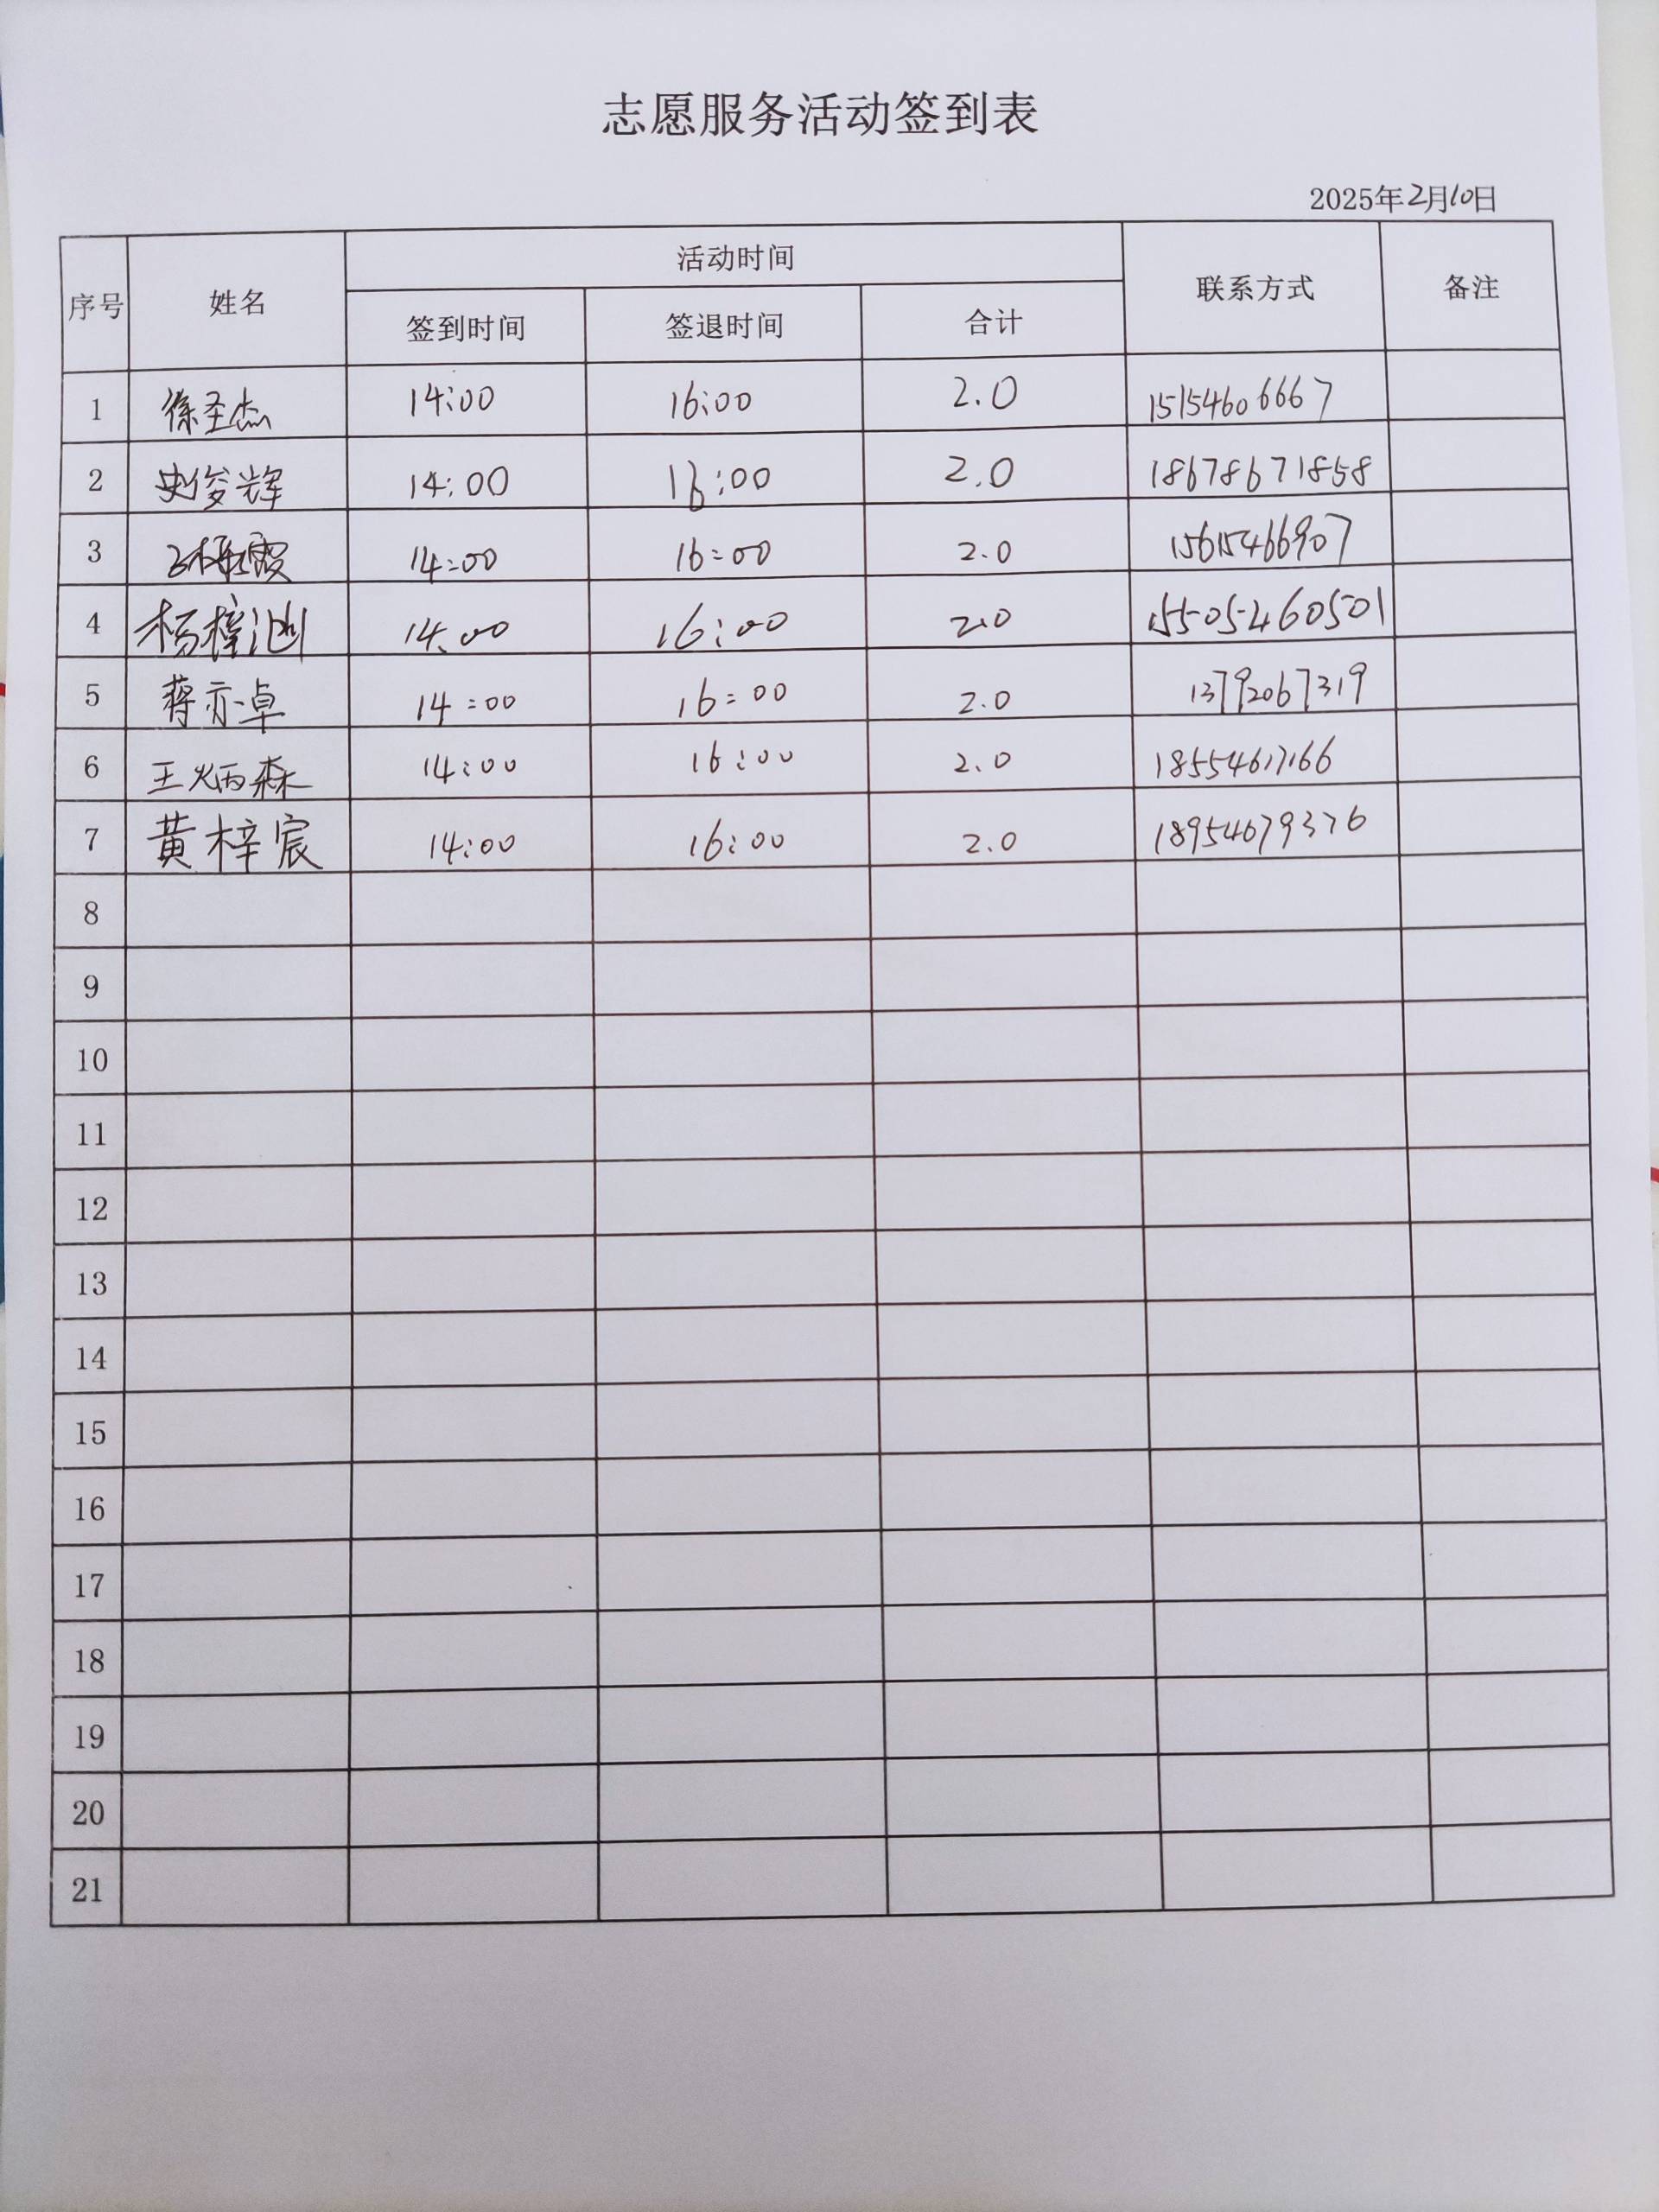 志愿服务活动签到表
2025年2月10日
序号 姓名 活动时间 联系方式 备注
签到时间 签退时间 合计
1 徐圣杰 14:00 16:00 2.0 15154606667
2 史俊辉 14:00 16:00 2.0 18678671858
3 14:00 16:00 2.0 15615466907
4 杨梓 14:00 16:00 2.0 15505460501
5 蒋亦卓 14:00 16:00 2.0 13792067319
6 王炳森 14:00 16:00 2.0 18554617166
7 黄梓宸 14:00 16:00 2.0 18954679376
8
9
10
11
12
13
14
15
16
17
18
19
20
21